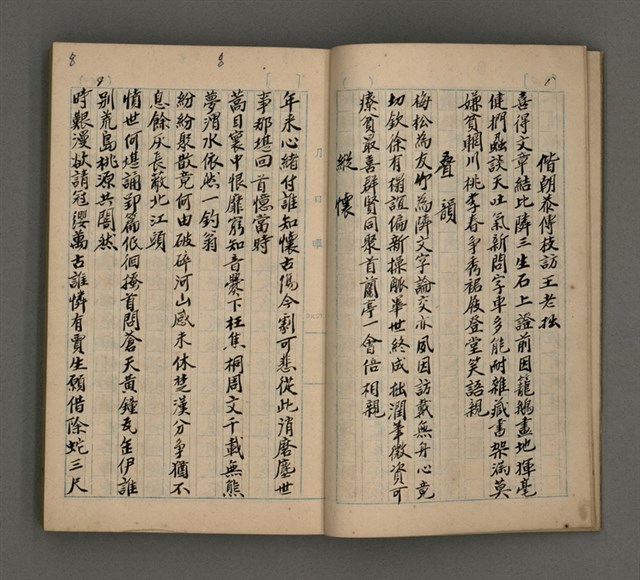 偕朝養傳技訪王老拙
喜得文章結比隣三生石上證前因籠鵝畫地揮毫
健捫蝨談天吐氣新問字車多能耐雜藏書架滿莫
嫌貧輞川桃李春爭秀裙屐登堂笑語親
疊韻
梅松為友竹為隣文字論交亦夙因訪戴無舟心竟
切欽徐有榻誼偏新操脈半世終成拙潤筆微資可
療貧最喜群賢同聚首蘭亭一會倍相親
縱懷
年來心緒付誰知懷古傷今割可悲從此消磨塵世
事那堪回首憶當時
蒿目寰中恨靡窮知音爨下枉焦桐周文千載無熊
夢渭水依然一釣翁
紛紛聚散竟何由破碎河山感未休楚漢分爭猶不
息餘灰長蔽北江頭
情世何堪誦郢篇低徊搔首問蒼天黃鐘瓦缶伊誰
別荒島桃源共闇然
時艱漫欲請冠纓萬古誰憐有賈生願借除蛇三尺
8
8
9